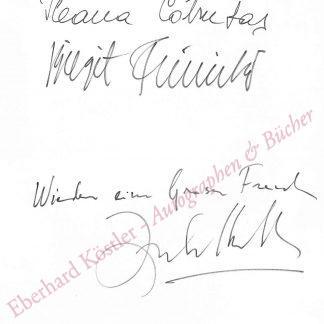 Ileana Cotrubas
Birgit Finnilä
Wieder eine Grosse Freude
Eberhard Köstler - Autographen & Bücher